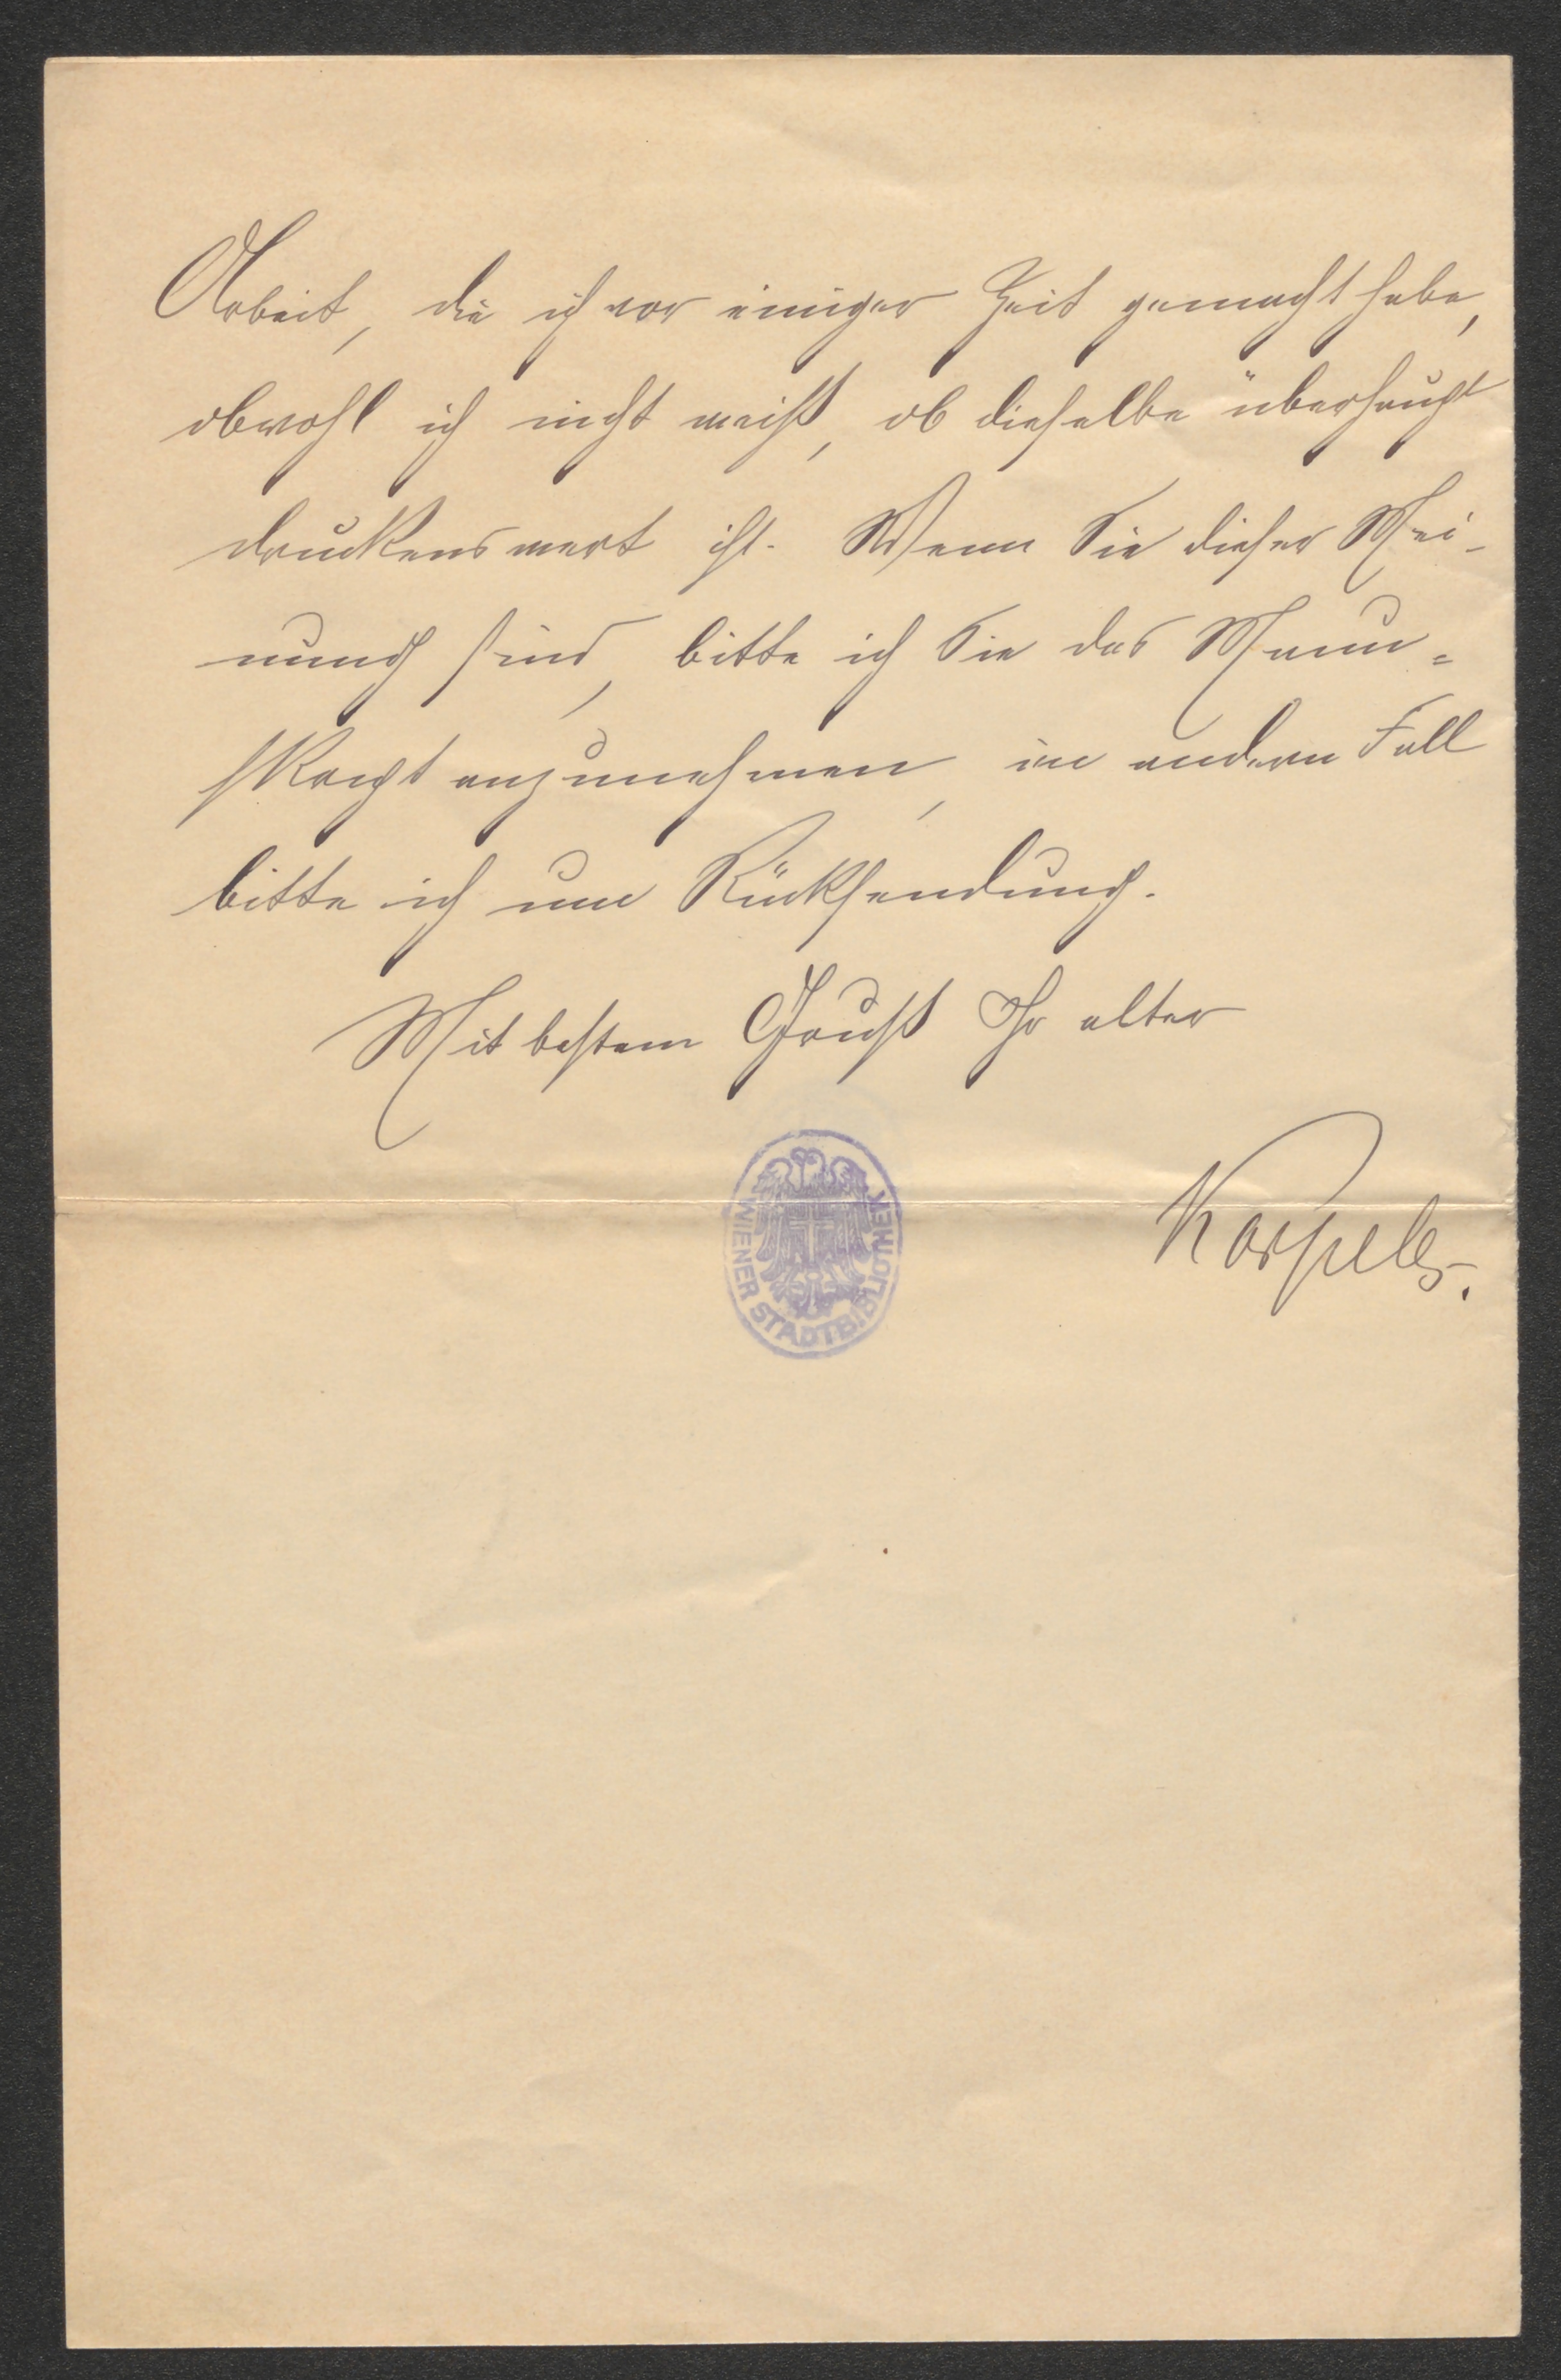 Arbeit, die ich vor einiger Zeit gemacht habe,
obwohl ich nicht weiß, ob dieselbe überhaupt
druckenswert ist. Wenn Sie dieser Mei-
nung sind, bitte ich Sie das Manu=
skript anzunehmen, im andern Fall
bitte ich um Rücksendung.
Mit bestem Gruß Ihr alter
Karpeles.
WIENER STADTBIBLIOTHEK